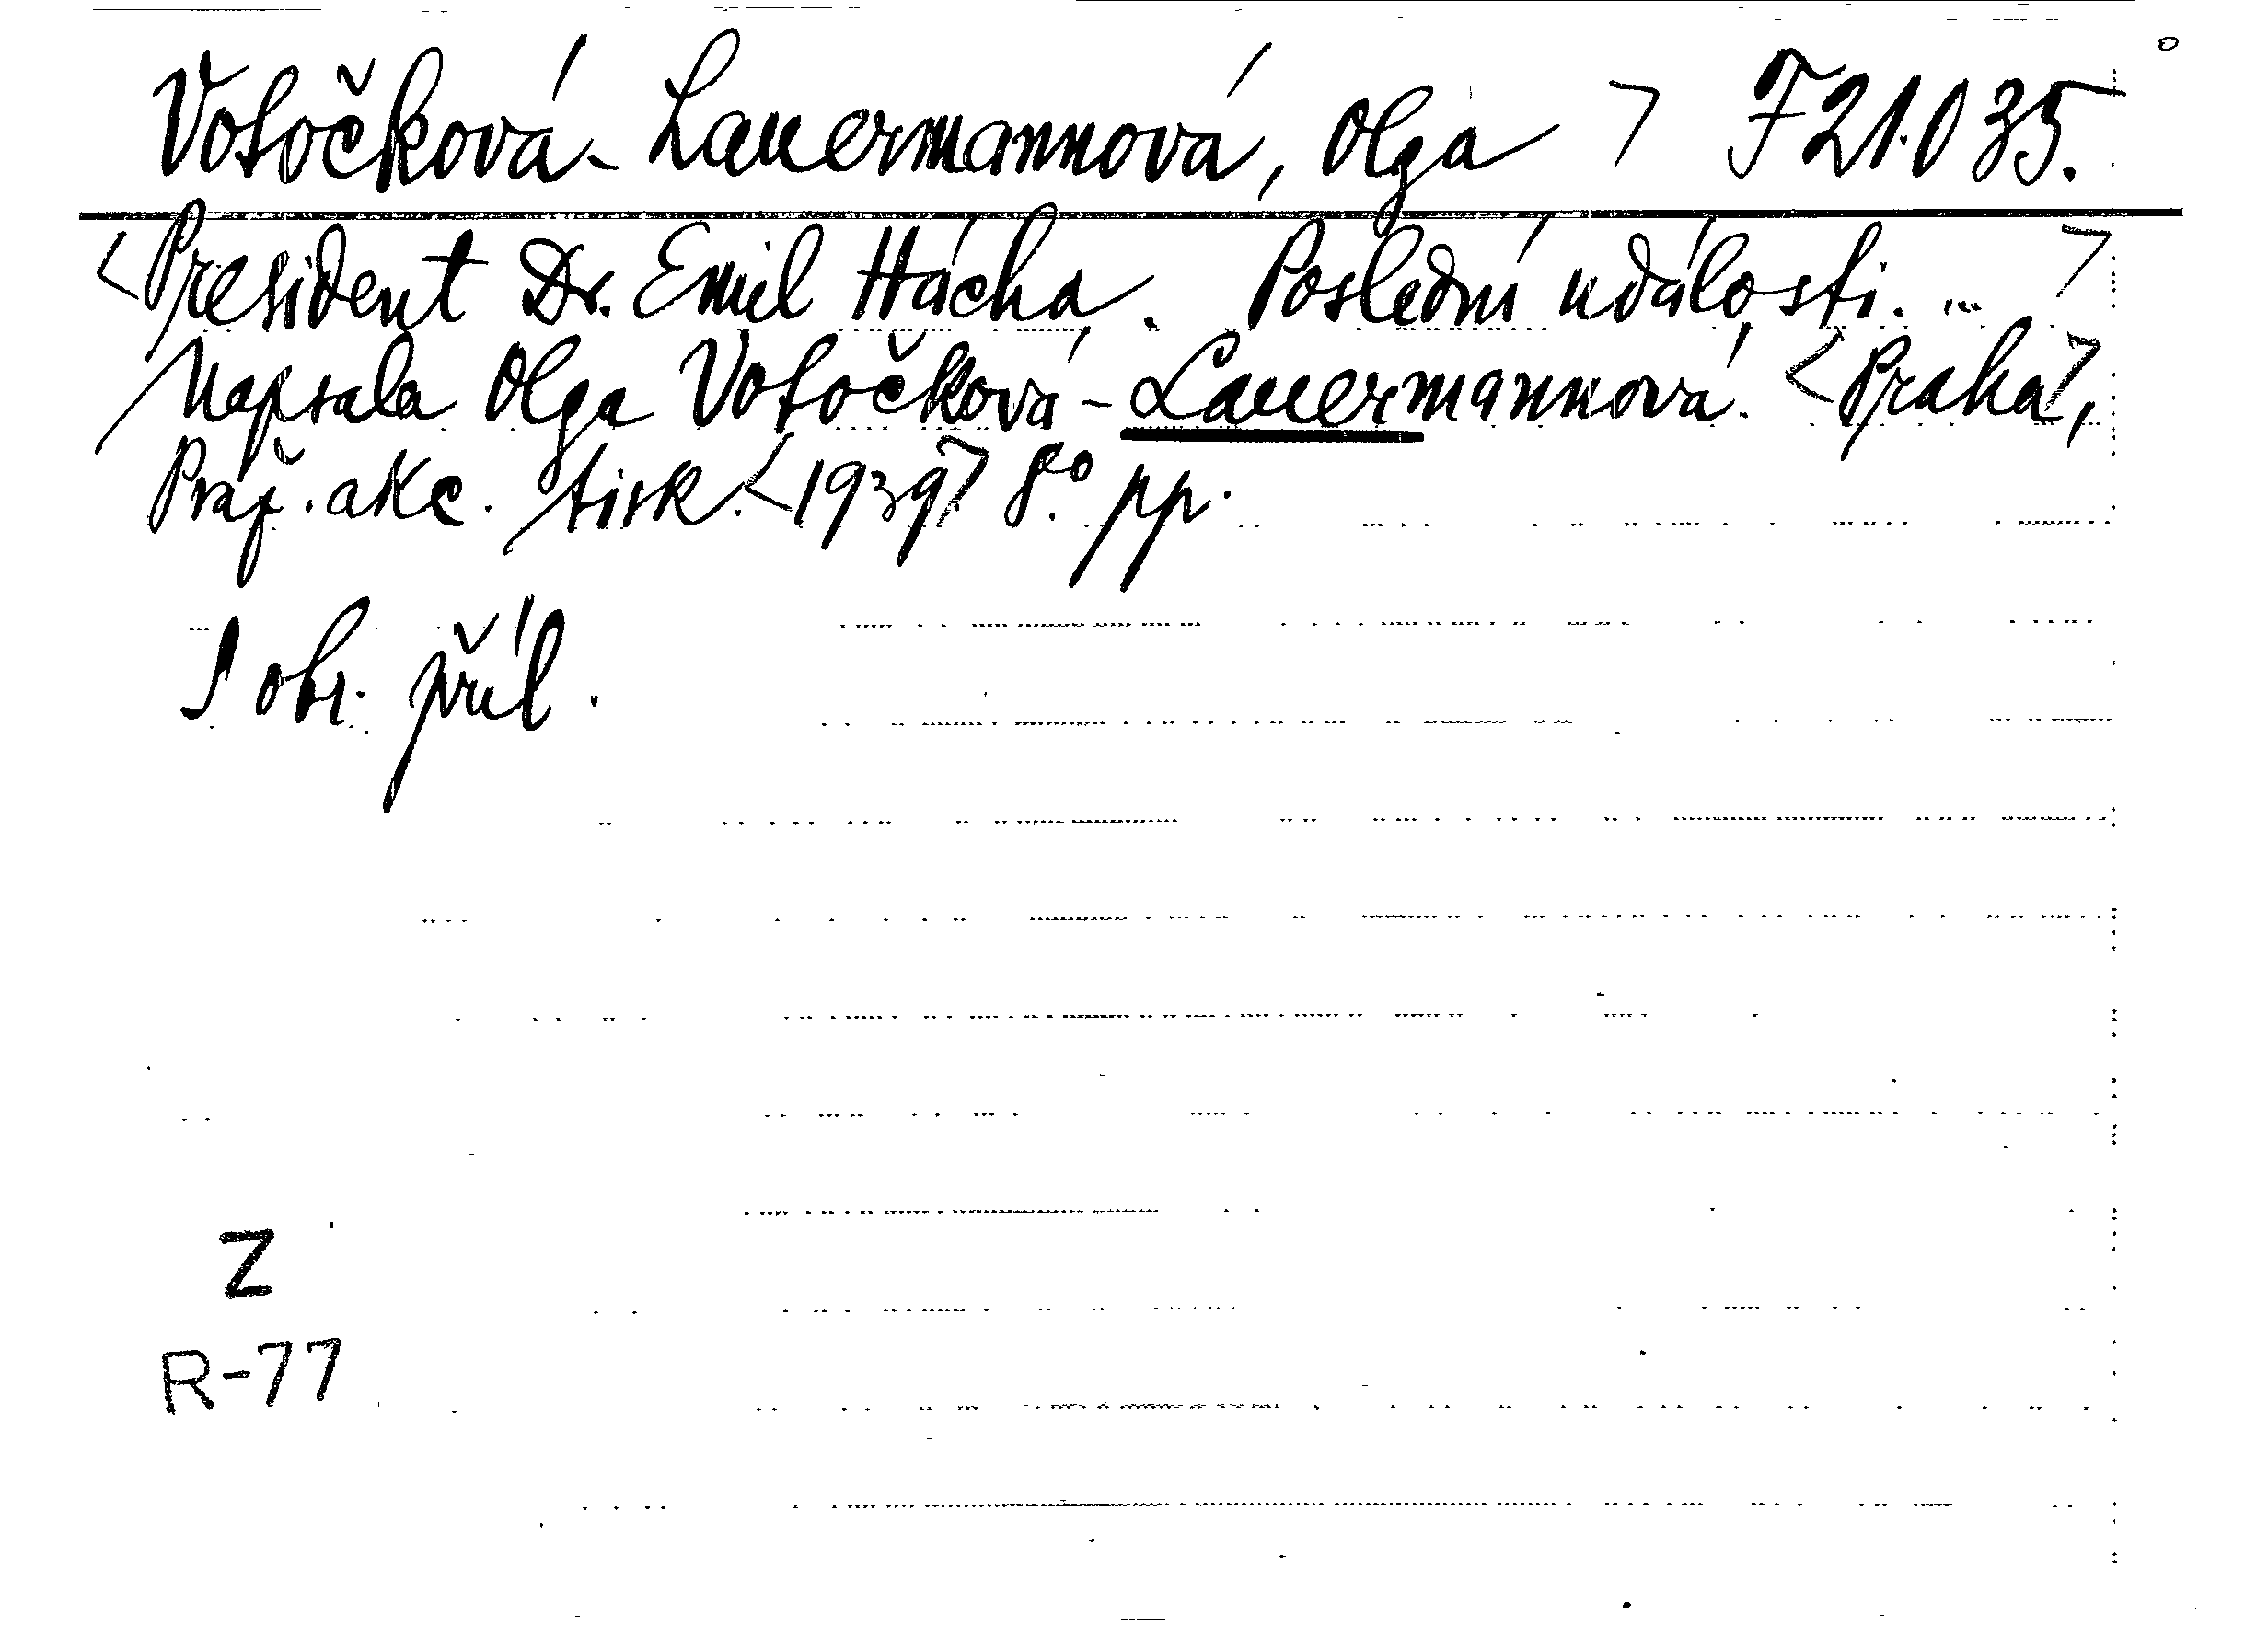 Votočková-Lauermannová, Olga > F 21.035.
<President Dr. Emil Hácha. Poslední události. ... >
Napsala Olga Votočková-Lauermannová. <Praha>,
Praž. akc. tisk. <1939> 8° pp.
S obr. příl.
Z
R-77